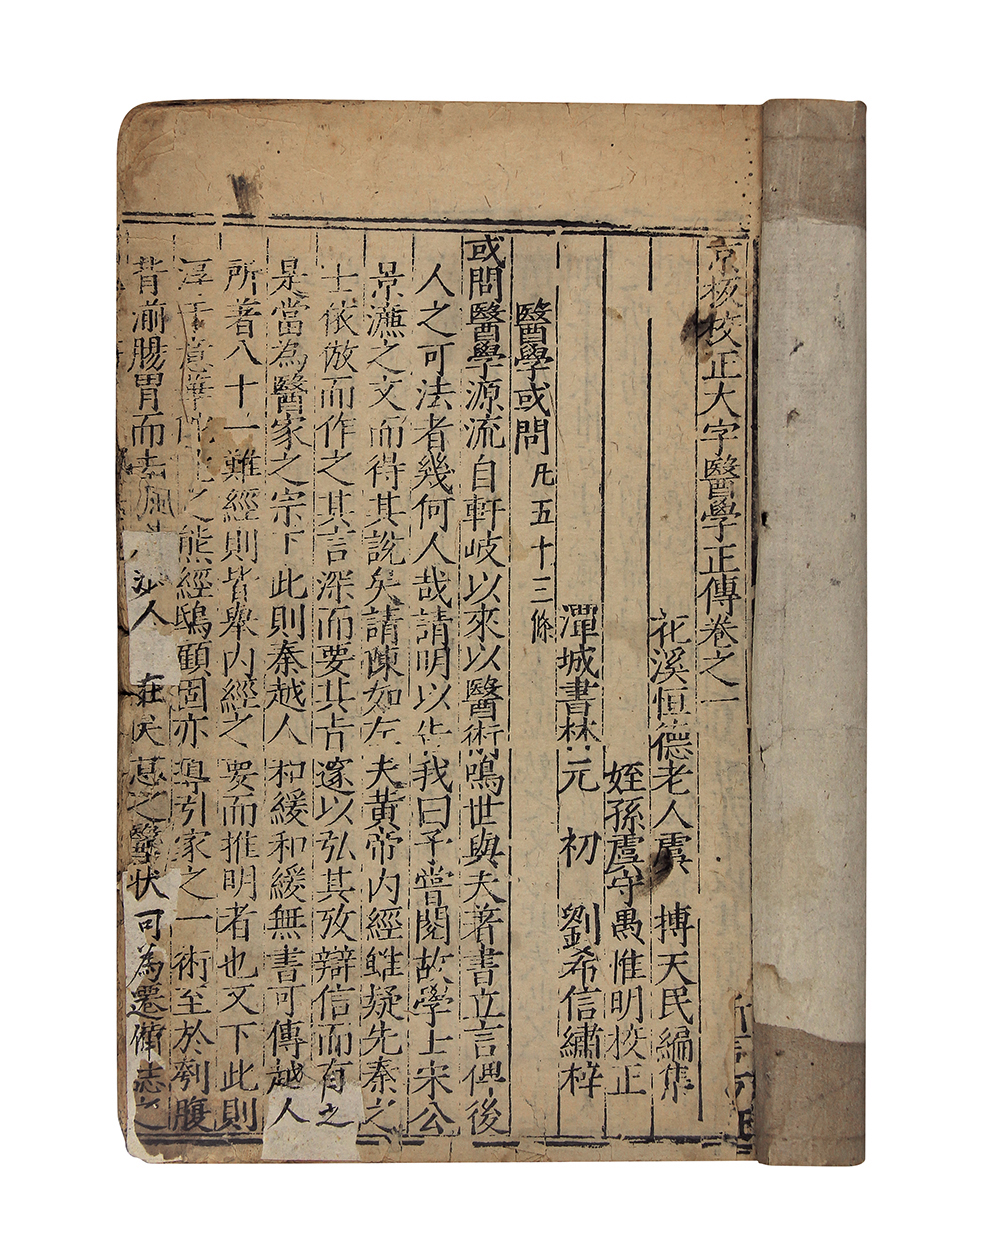 京板校正大字醫學正傳卷之一
花溪恒德老人虞 摶天民編集
姪孫虞守愚惟明校正
潭城書林元 初 劉希信繡梓
醫學或問凡五十三條
或問醫學源流自軒岐以來以醫術鳴世與夫著書立言俾後
人之可法者幾何人哉請明以告我曰予嘗閱故學士宋公
景濂之文而得其說矣請陳如左夫黃帝內經雖疑先秦之
士依倣而作之其言深而要其旨邃以弘其攷辯信而有之
是當為醫家之宗下此則秦越人和緩和緩無書可傳越人
所著八十一難經則皆舉內經之要而推明者也又下此則
淳于意華佗佗之熊經鴟顧固亦導引家之一術至於刳腹
背湔腸胃而去 人 在 民 之醫狀可為遷 志之